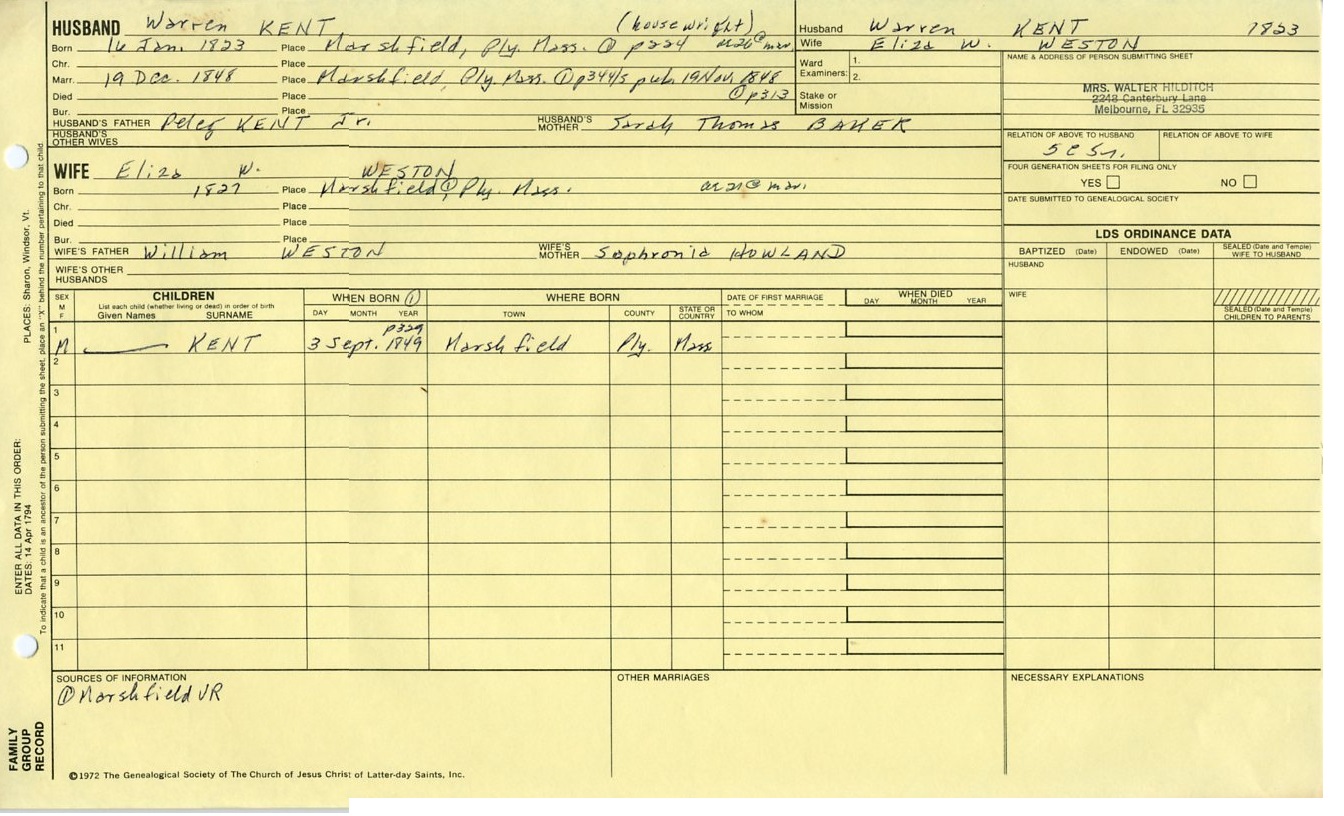 HUSBAND Warren KENT (housewright)
Born 16 Jan. 1823 Place Marshfield, Ply. Mass. ① p224 ae 26 @ mar.
Chr. Place
Marr. 19 Dec. 1848 Place Marshfield, Ply. Mass. ① p344/5 pub. 19 Nov. 1848
Died Place ① p313
Bur. Place
HUSBAND'S FATHER Peleg KENT Jr. HUSBAND'S MOTHER Sarah Thomas BAKER
HUSBAND'S OTHER WIVES
Husband Warren KENT 1823
Wife Eliza W. WESTON
Ward Examiners: 1.
2.
Stake or Mission
NAME & ADDRESS OF PERSON SUBMITTING SHEET
MRS. WALTER HILDITCH
2248 Canterbury Lane
Melbourne, FL 32935
RELATION OF ABOVE TO HUSBAND RELATION OF ABOVE TO WIFE
FOUR GENERATION SHEETS FOR FILING ONLY
YES NO
DATE SUBMITTED TO GENEALOGICAL SOCIETY
WIFE Eliza W. WESTON
Born 1827 Place Marshfield ①, Ply. Mass. ae 21 @ mar.
Chr. Place
Died Place
Bur. Place
WIFE'S FATHER William WESTON WIFE'S MOTHER Sophronia HOWLAND
WIFE'S OTHER HUSBANDS
LDS ORDINANCE DATA
BAPTIZED (Date) ENDOWED (Date) SEALED (Date and Temple) WIFE TO HUSBAND
HUSBAND
WIFE
SEALED (Date and Temple) CHILDREN TO PARENTS
SEX M F CHILDREN WHEN BORN ① WHERE BORN DATE OF FIRST MARRIAGE WHEN DIED
List each child (whether living or dead) in order of birth
Given Names SURNAME DAY MONTH YEAR TOWN COUNTY STATE OR COUNTRY TO WHOM DAY MONTH YEAR
p329
1 M —— KENT 3 Sept. 1849 Marshfield Ply. Mass
2
3
4
5
6
7
8
9
10
11
SOURCES OF INFORMATION OTHER MARRIAGES NECESSARY EXPLANATIONS
① Marshfield VR
©1972 The Genealogical Society of The Church of Jesus Christ of Latter-day Saints, Inc.
FAMILY GROUP RECORD
ENTER ALL DATA IN THIS ORDER:
DATES: 14 Apr 1794 PLACES: Sharon, Windsor, Vt.
To indicate that a child is an ancestor of the person submitting the sheet, place an "X" behind the number pertaining to that child.